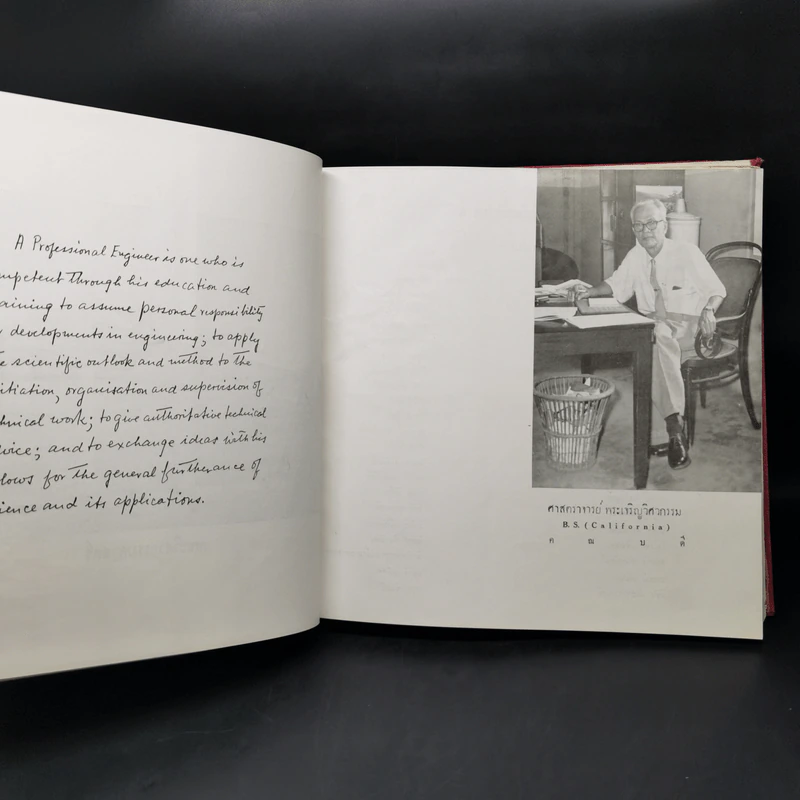 A Professional Engineer is one who is
mpetent through his education and
aining to assume personal responsibility
developments in engineering; to apply
e scientific outlook and method to the
itiation, organisation and supervision of
chnical work; to give authoritative technical
vice; and to exchange ideas with his
llows for the general furtherance of
ience and its applications.
ศาสตราจารย์ พระเจริญวิศวกรรม
B.S. (California)
คณบดี